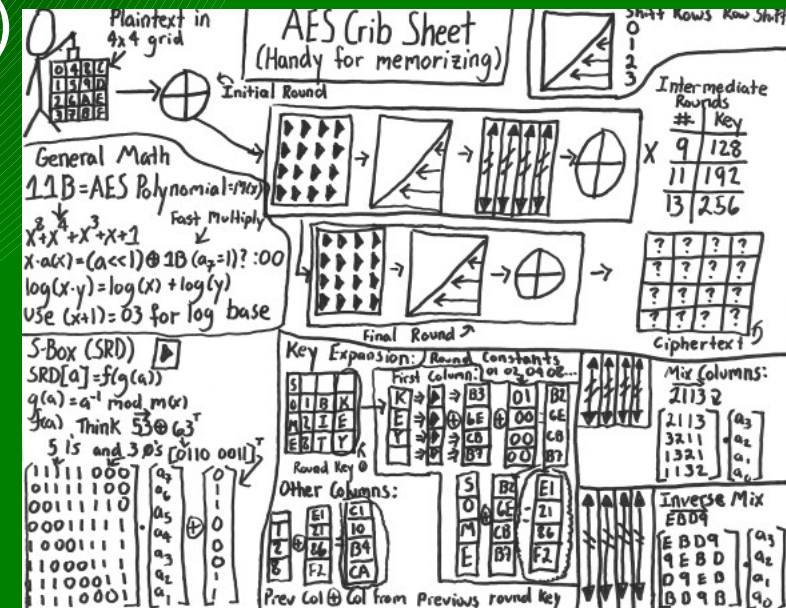 Plaintext in
4x4 grid
0 4 8 C
1 5 9 D
2 6 A E
3 7 B F
Initial Round
AES Crib Sheet
(Handy for memorizing)
Shift Rows Row Shift
0
1
2
3
Intermediate
Rounds
# Key
9 128
11 192
13 256
X
General Math
11B=AES Polynomial=m(x)
Fast Multiply
x⁸+x⁴+x³+x+1
x·a(x)=(a<<1)⊕1B (a₇=1)?:00
log(x·y)=log(x)+log(y)
use (x+1)=03 for log base
Final Round
? ? ? ?
? ? ? ?
? ? ? ?
? ? ? ?
Ciphertext
S-Box (SRD)
SRD[a]=f(g(a))
g(a)=a⁻¹ mod m(x)
f(a) Think 53⊕63ᵀ
5 1s and 3 0s [0110 0011]ᵀ
1 1 1 1 1 0 0 0
0 1 1 1 1 1 0 0
0 0 1 1 1 1 1 0
0 0 0 1 1 1 1 1
1 0 0 0 1 1 1 1
1 1 0 0 0 1 1 1
1 1 1 0 0 0 1 1
1 1 1 1 0 0 0 1
a₇
a₆
a₅
a₄
a₃
a₂
a₁
⊕
0
1
1
0
0
0
1
1
Key Expansion: Round Constants
First Column: 01 02 04 08...
S
O 1 B K
M 2 I E
E 8 T Y
Round Key 0
K
E
Y
⊕
B3
6E
CB
B7
⊕
01
00
00
00
B2
6E
CB
B7
Other Columns:
1
2
8
⊕
E1
21
86
F2
C1
10
B4
CA
S
O
M
E
⊕
B2
6E
CB
B7
E1
21
86
F2
Prev Col ⊕ Col from Previous round key
Mix Columns:
2113
2 1 1 3
3 2 1 1
1 3 2 1
1 1 3 2
a₃
a₂
a₁
a₀
Inverse Mix
EBD9
E B D 9
9 E B D
D 9 E B
B D 9 E
a₃
a₂
a₁
a₀